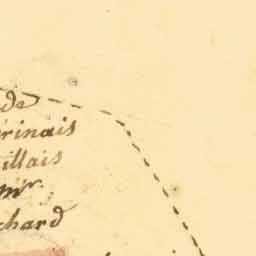 de
rinais
illais
mr.
chard